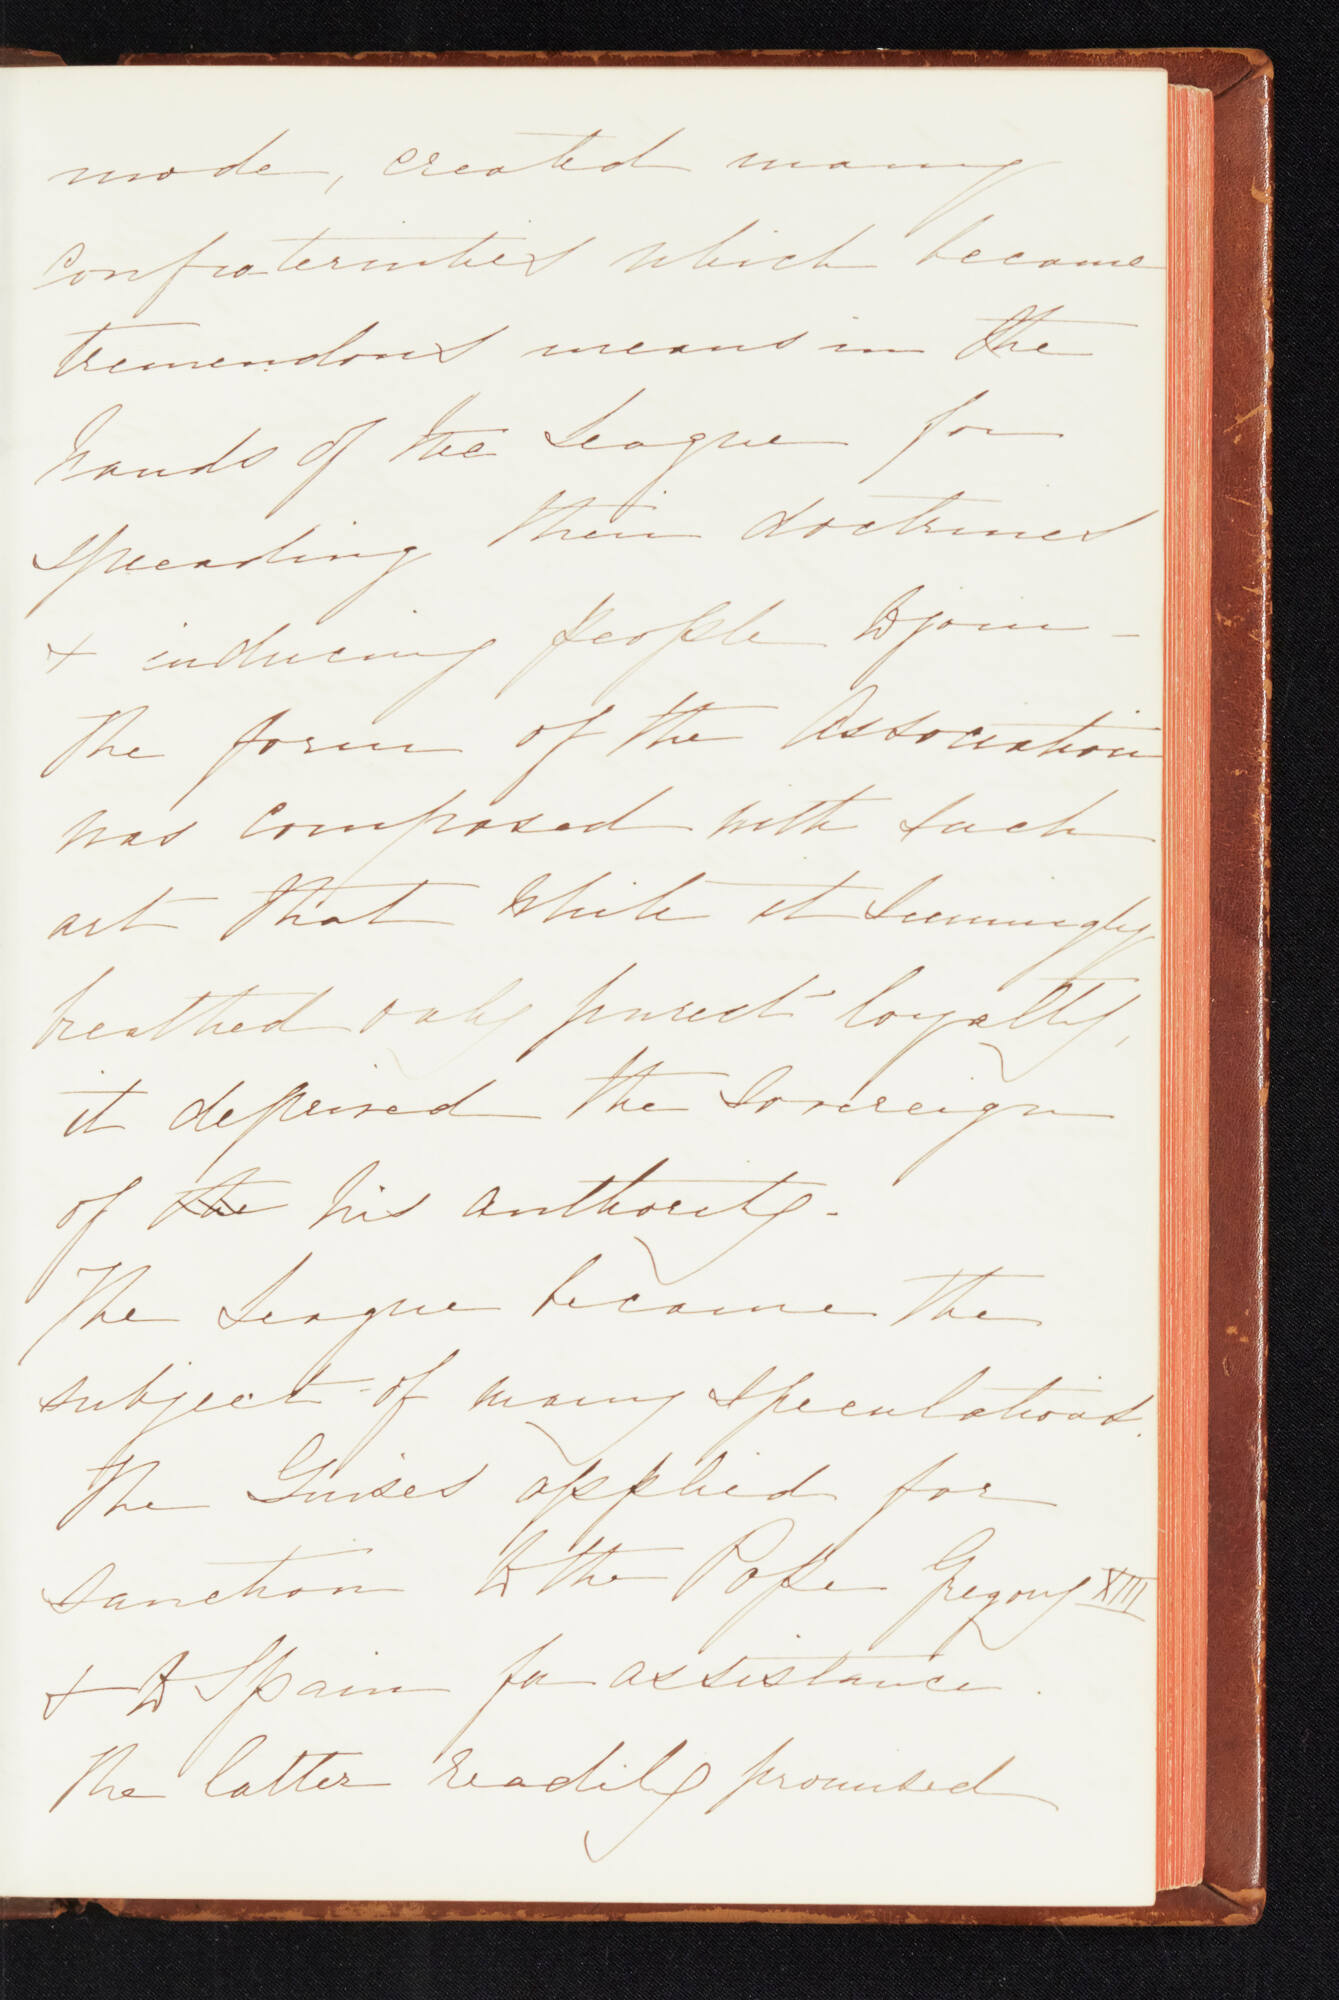 mode, created many
confraternities which became
tremendous means in the
hands of the League for
spreading their doctrines
& inducing people to join -
the form of the Association
was composed with such
art that while it seemingly
breathed only purest loyalty,
it deprived the Sovereign
of the his authority -
The League became the
subject of many speculations.
The Guises applied for
sanction to the Pope Gregory XIII
& to Spain for assistance.
The latter readily promised